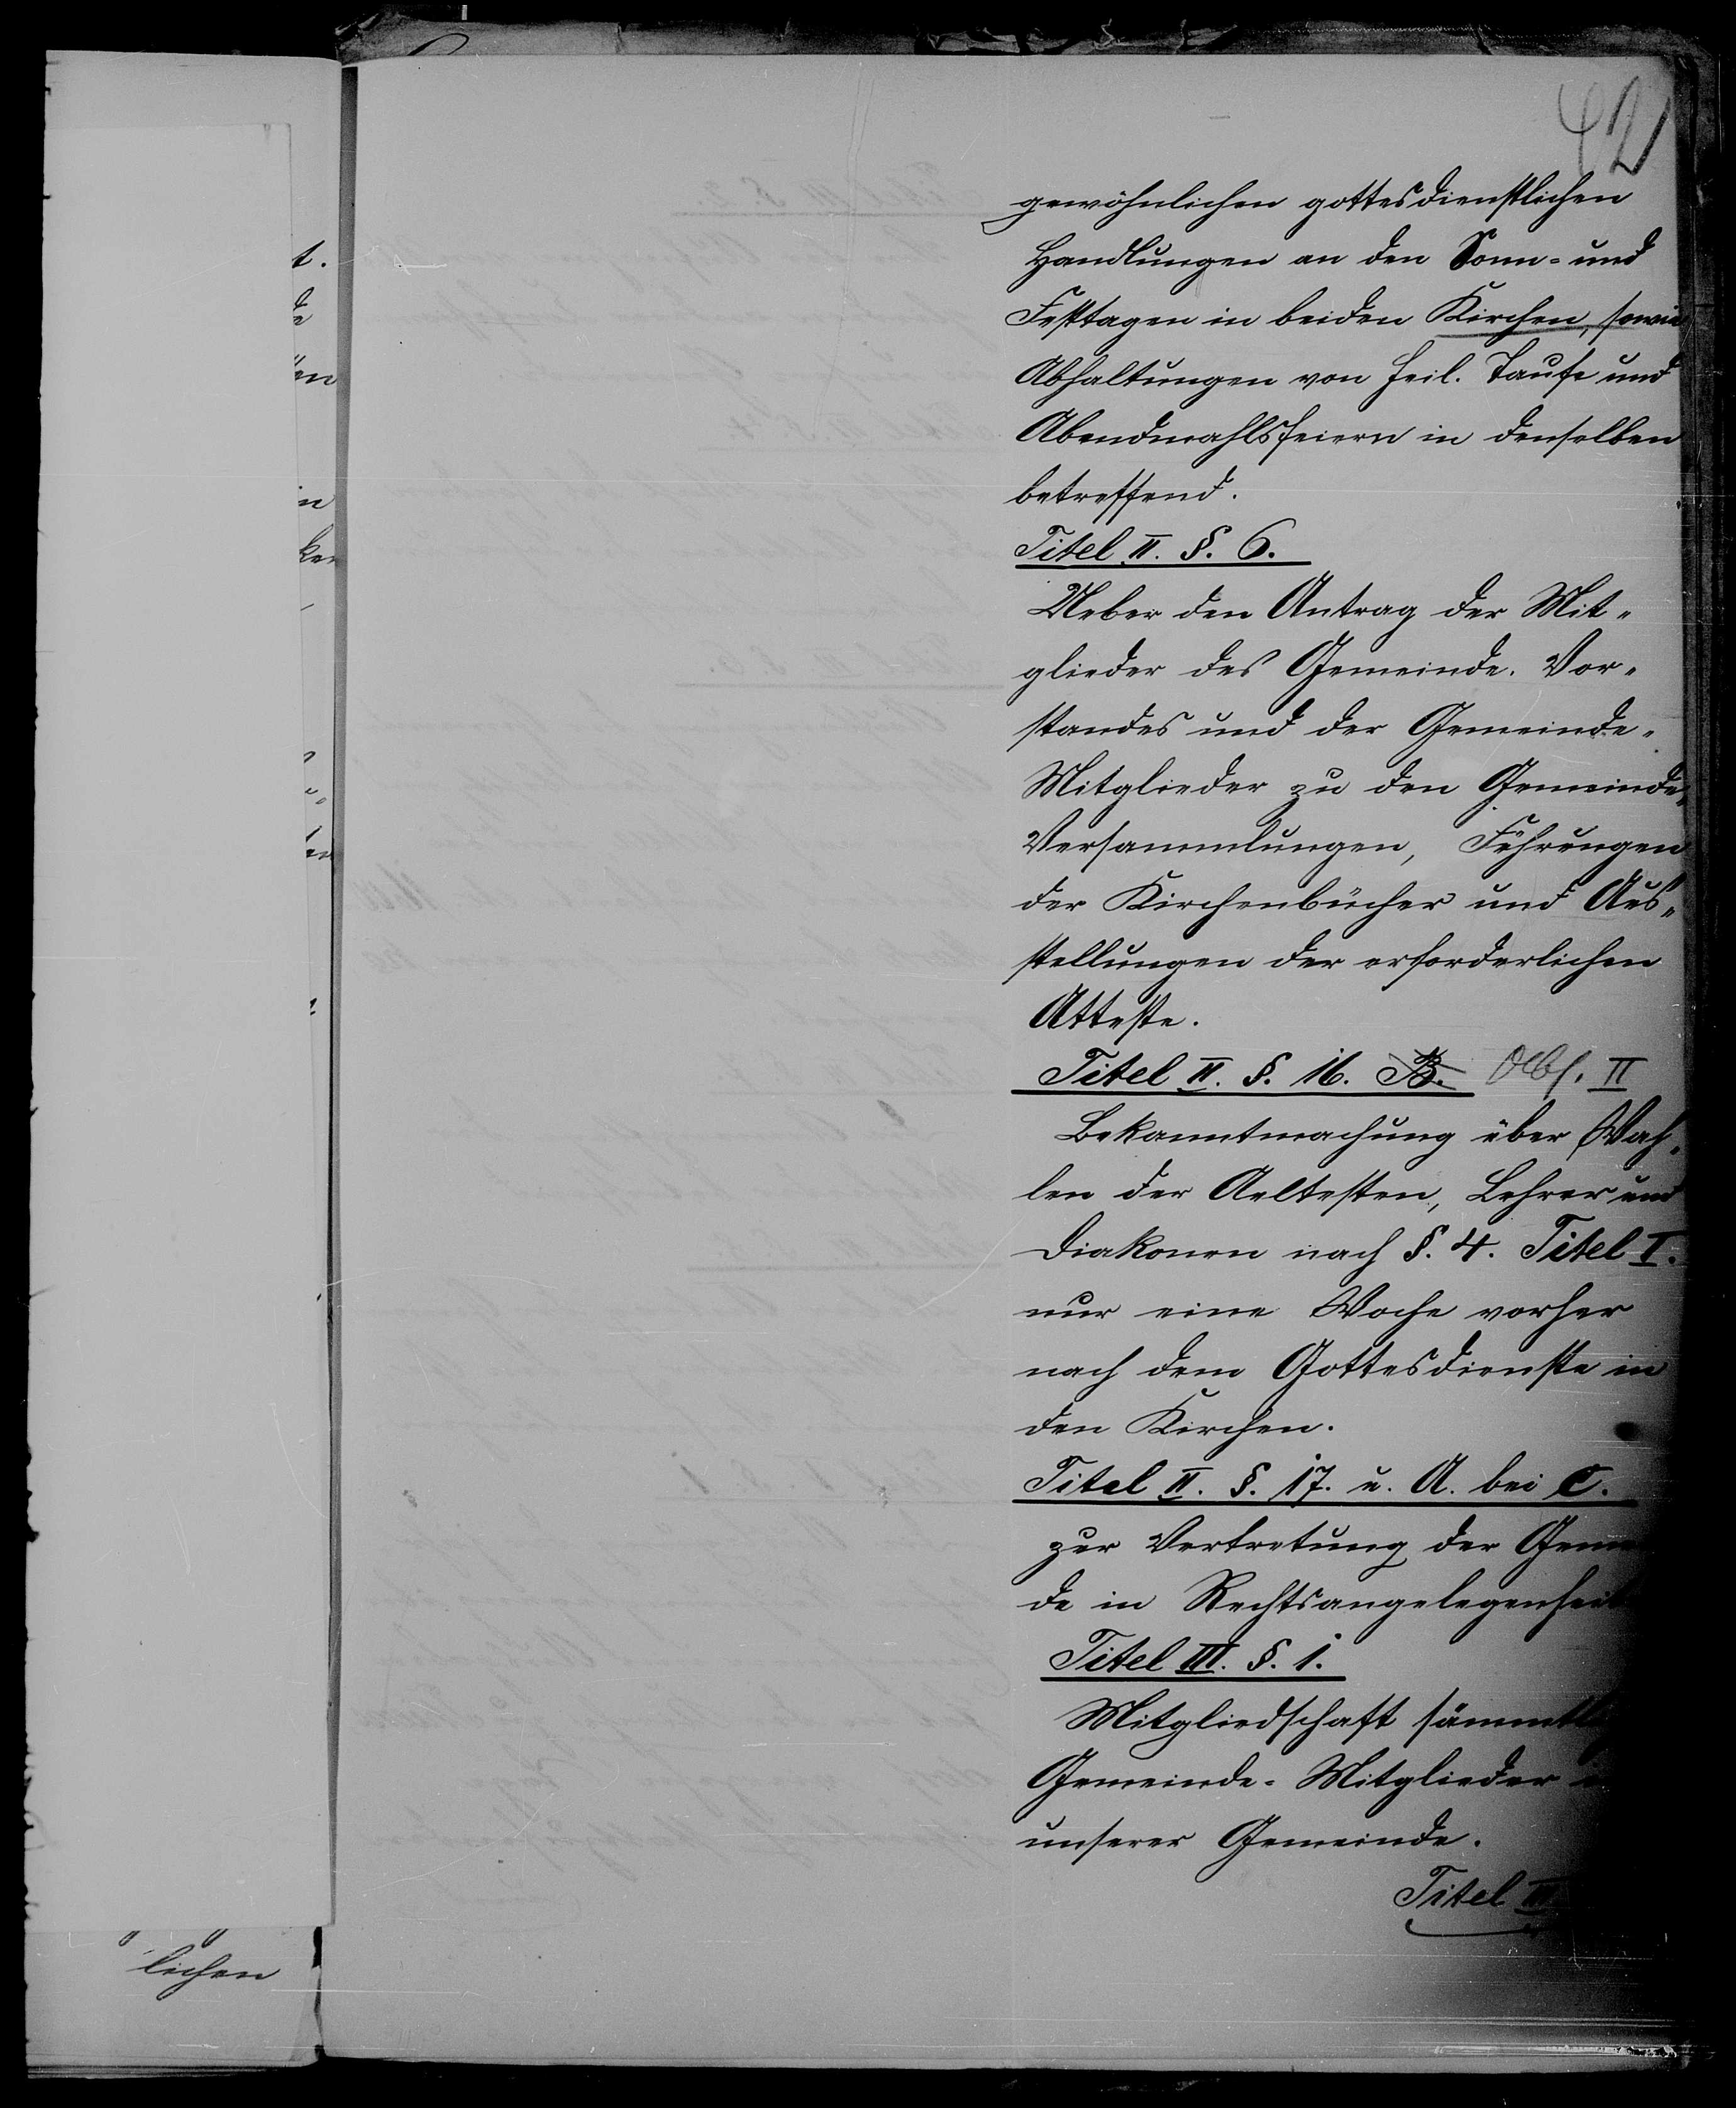 42
gewöhnlichen gottesdienstlichen
Handlungen an den Sonn- und
Festtagen in beiden Kirchen, sowie
Abhaltungen von heil. Taufe und
Abendmahlsfeiern in denselben
betreffend.
Titel II. §. 6.
Ueber den Antrag der Mit-
glieder des Gemeinde-Vor-
standes und der Gemeinde-
Mitglieder zu den Gemeinde-
Versammlungen, Führungen
der Kirchenbücher und Aus-
stellungen der erforderlichen
Atteste.
Titel II. §. 16. B. Abs. II
Bekanntmachung über Wah-
len der Aeltesten, Lehrer und
Diakonen nach §. 4. Titel I.
nur eine Woche vorher
nach dem Gottesdienste in
den Kirchen.
Titel II. §. 17. u. A. bei C.
zur Vertretung der Geme
de in Rechtsangelegenheit
Titel III. §. 1.
Mitgliedschaft sämmtli
Gemeinde-Mitglieder in
unserer Gemeinde.
Titel II
lichen